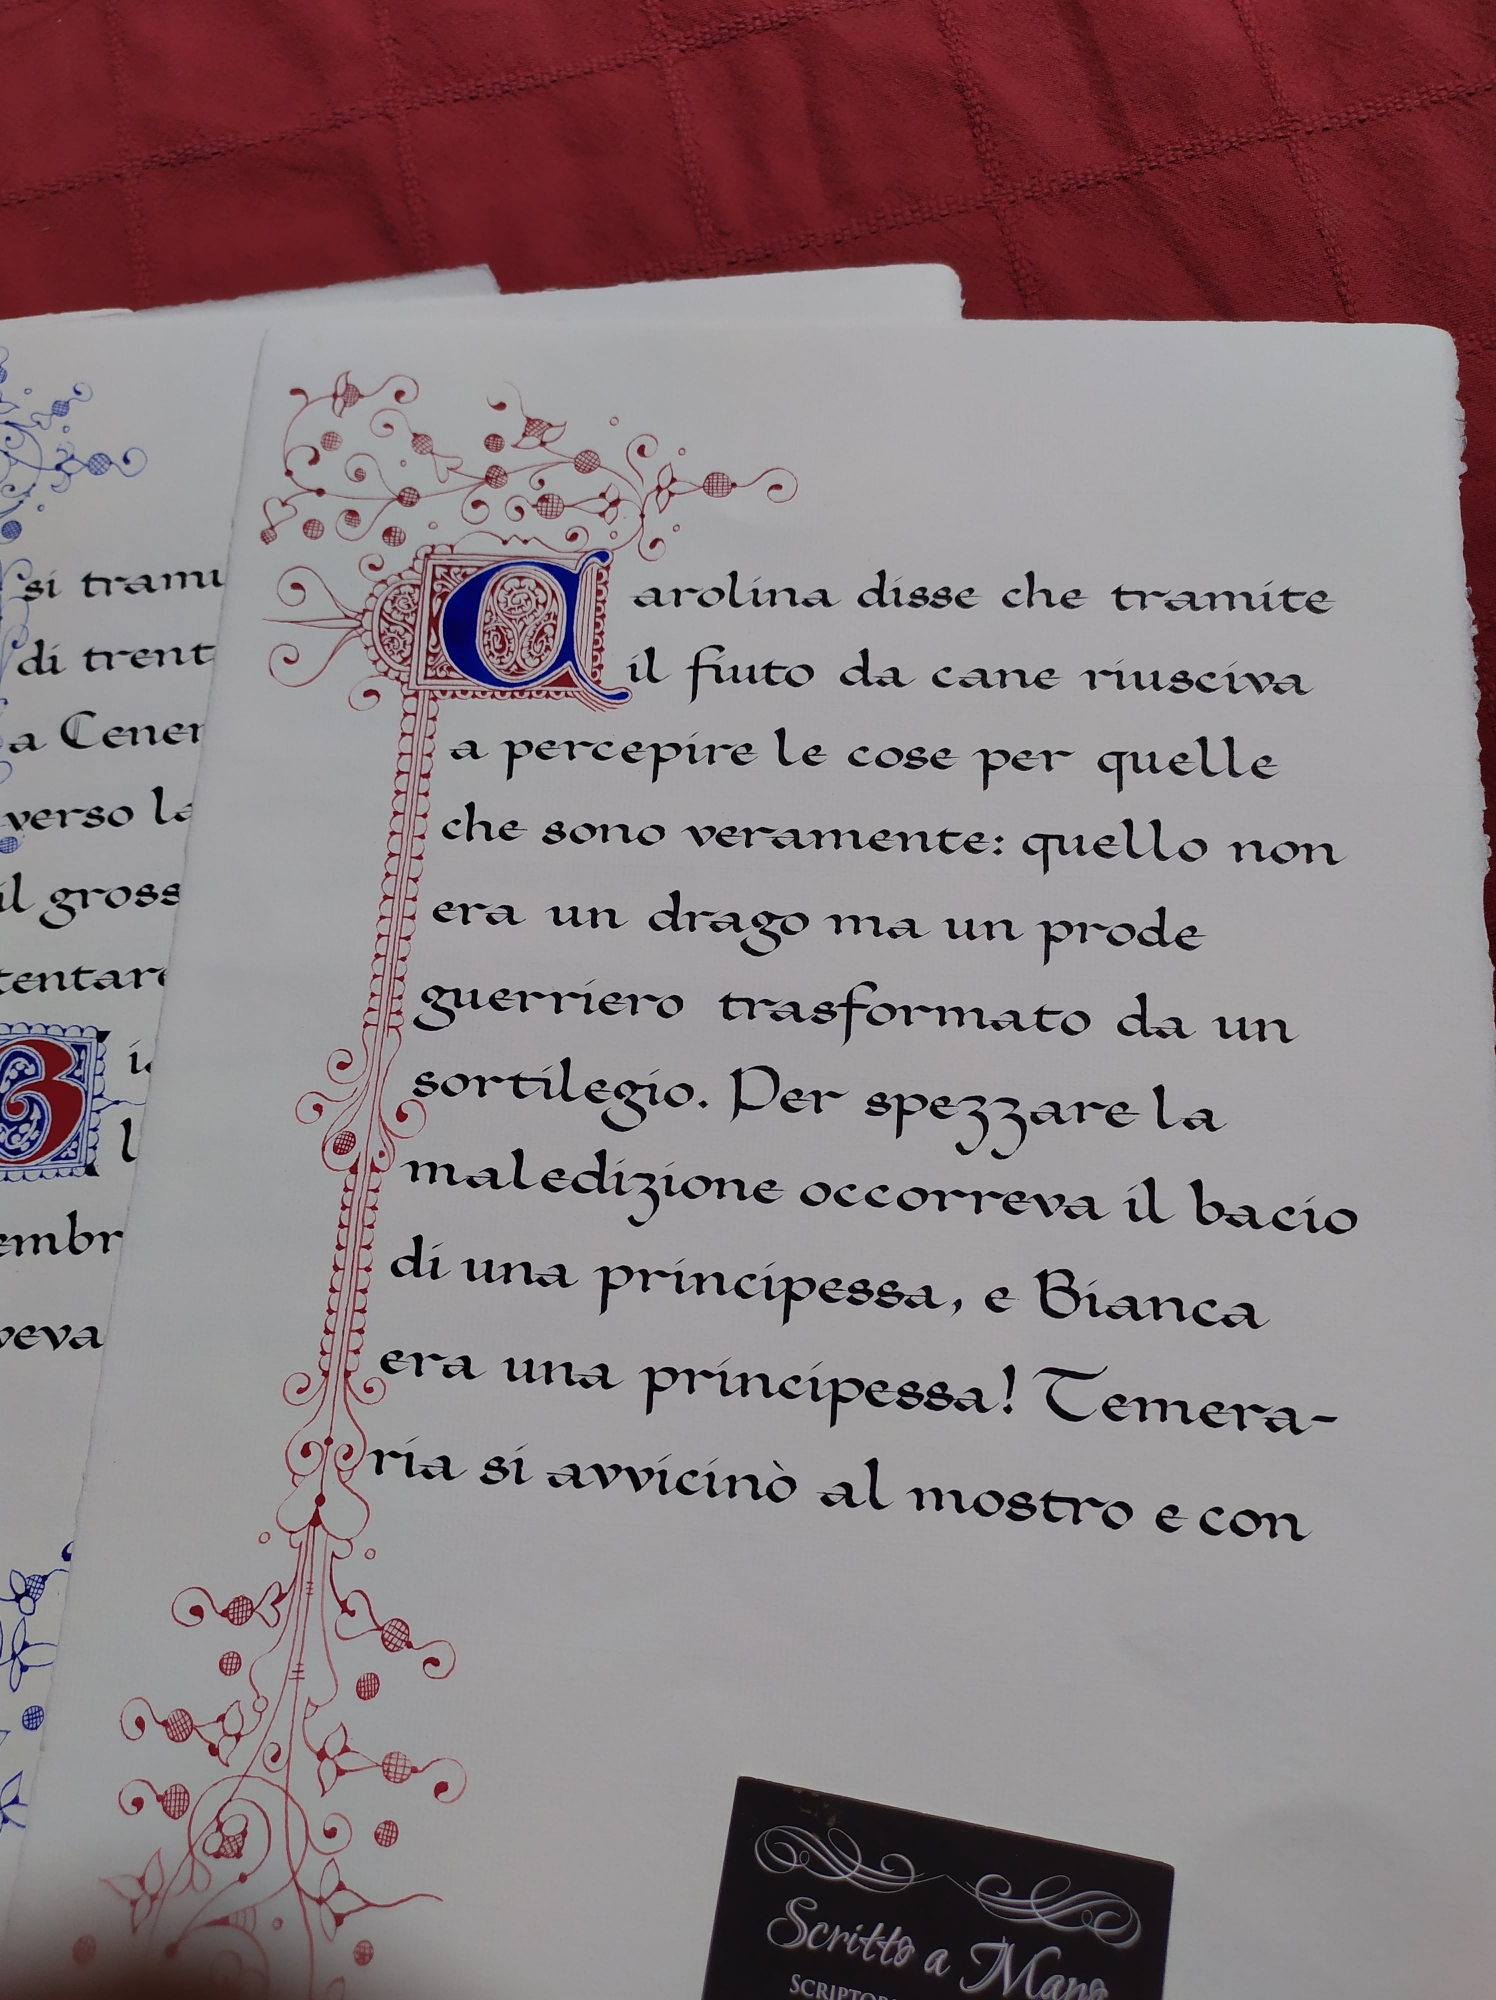 si tramu
di trent
a Cener
verso la
il gross
tentare
B
embr
veva
Carolina disse che tramite
il fiuto da cane riusciva
a percepire le cose per quelle
che sono veramente: quello non
era un drago ma un prode
guerriero trasformato da un
sortilegio. Per spezzare la
maledizione occorreva il bacio
di una principessa, e Bianca
era una principessa! Temera-
ria si avvicinò al mostro e con
Scritto a Mano